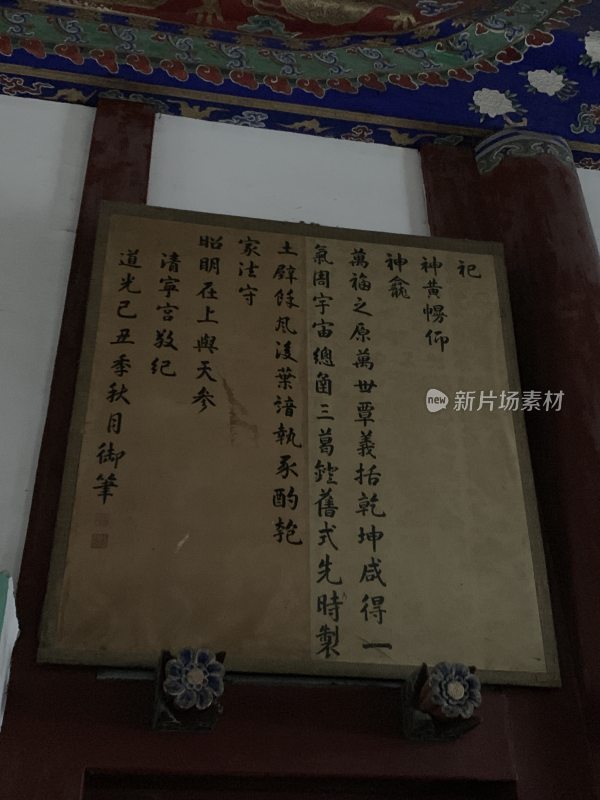 祀
神黄幔仰
神龕
萬福之原萬世覃義括乾坤咸得一
氣周宇宙總函三葛燈舊式先時製
土壁餘風後葉諳執豕酌匏
家法守
昭明在上與天參
清寧宮敬紀
道光己丑季秋月御筆
new 新片场素材